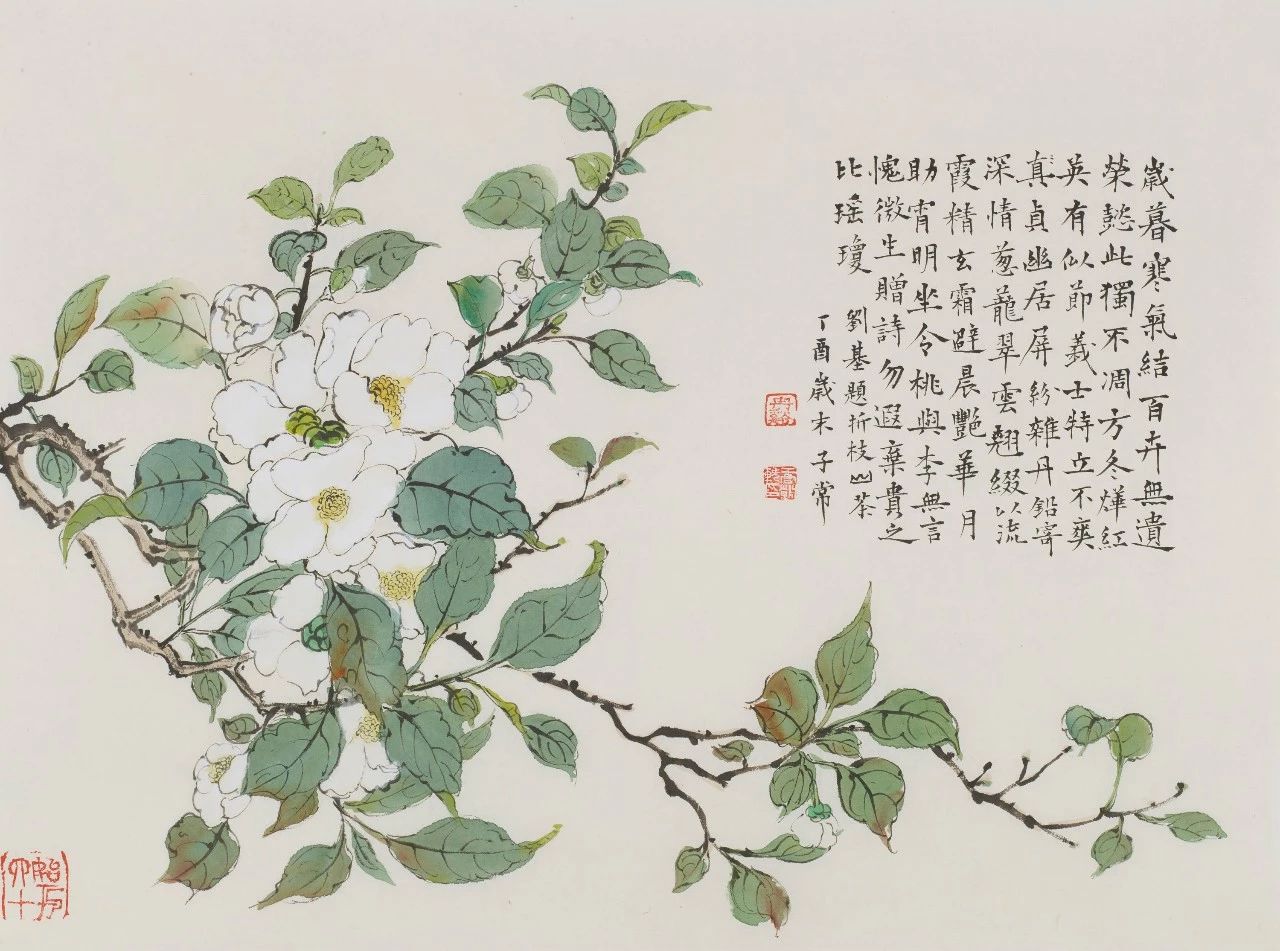 歲暮寒氣結百卉無遺
榮懿此獨不凋方冬燁紅
英有似節義士特立不爽
真貞幽居屏紛雜丹鉛寄
深情葱蘢翠雲翹綴以流
霞精玄霜避晨艷華月
助宵明坐令桃與李無言
愧微生贈詩勿遐棄貴之
比瑤瓊
劉基題折枝山茶
丁酉歲末子常